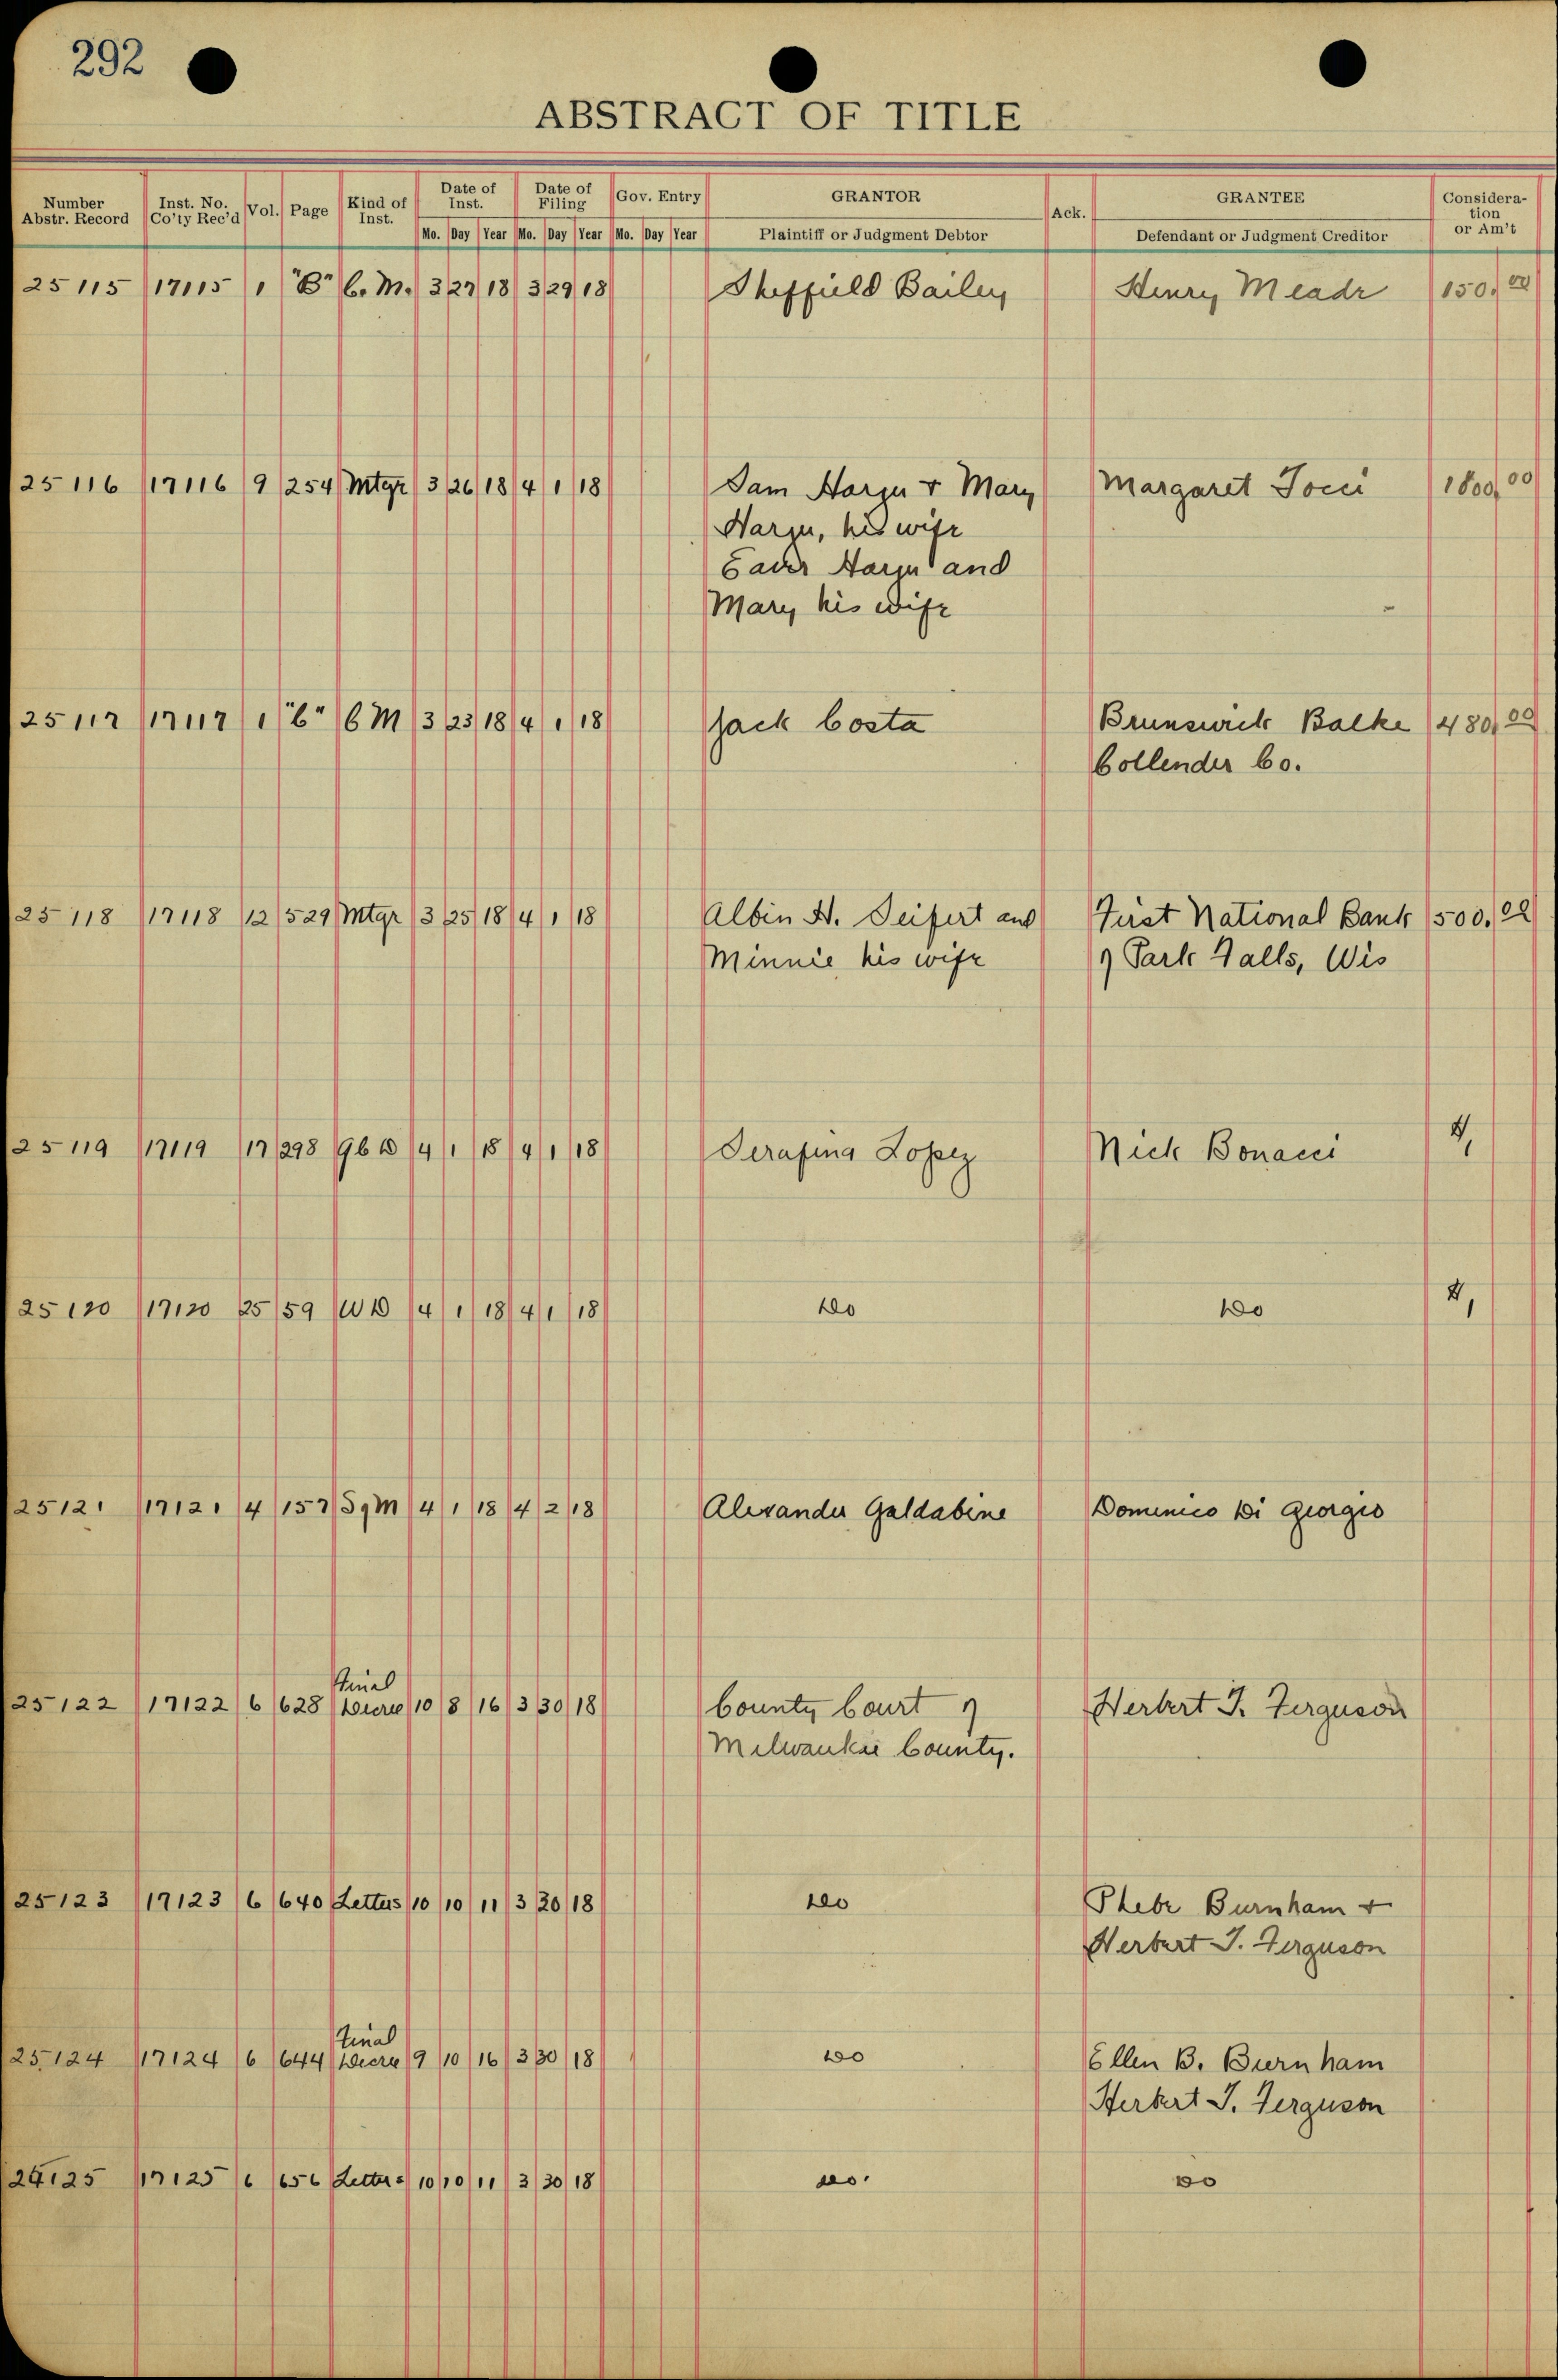 292
ABSTRACT OF TITLE
Number Abstr. Record Inst. No. Co'ty Rec'd Vol. Page Kind of Inst. Date of Inst. Date of Filing Gov. Entry GRANTOR Ack. GRANTEE Consideration or Am't
Mo. Day Year Mo. Day Year Mo. Day Year Plaintiff or Judgment Debtor Defendant or Judgment Creditor
25115 17115 1 "B" C. M. 3 27 18 3 29 18 Sheffield Bailey Henry Meade 150.00
25116 17116 9 254 Mtge 3 26 18 4 1 18 Sam & Mary Margaret Tocci 1800.00
his wife
and
Mary his wife
25117 17117 1 "C" C M 3 23 18 4 1 18 Jack Costa Brunswick Balke 480.00
Collender Co.
25118 17118 12 529 Mtge 3 25 18 4 1 18 Albin H. Seifert and First National Bank 500.00
Minnie his wife of Park Falls, Wis
25119 17119 17 298 QCD 4 1 18 4 1 18 Serafina Lopez Nick Bonacci
25120 17120 25 59 WD 4 1 18 4 1 18 Do Do
25121 17121 4 157 SgM 4 1 18 4 2 18 Alexander Galdabine Domenico Di Giorgio
Final
25122 17122 6 628 Decree 10 8 16 3 30 18 County Court of Herbert J. Ferguson
Milwaukee County.
25123 17123 6 640 Letters 10 10 11 3 30 18 Do Phebe Burnham &
Herbert J. Ferguson
Final
25124 17124 6 644 Decree 9 10 16 3 30 18 Do Ellen B. Burnham
Herbert J. Ferguson
25125 17125 6 656 Letters 10 10 11 3 30 18 Do. Do